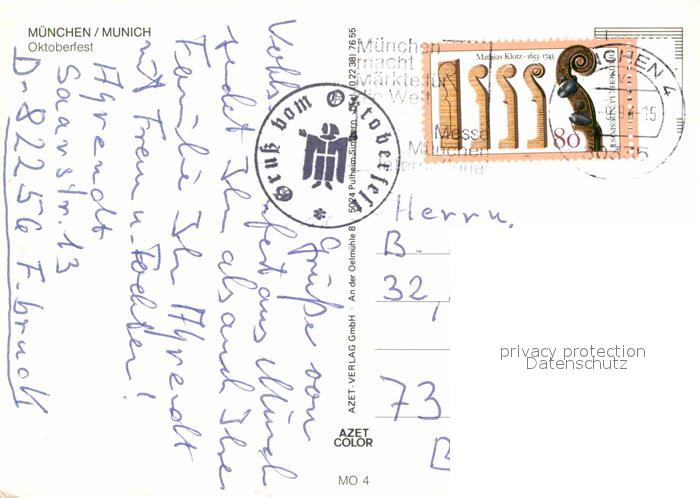 MÜNCHEN / MUNICH
Oktoberfest
Grüße vom
aus Münch
sendet Ihn als auch Ihre
Familie Ihr
mit Frau u. Tochter!
Saarstr. 13
D-82256 F.bruck
Gruß vom Oktoberfest
München
macht
Märkte für
die Welt
Messe
München
International
Mathias Klotz · 1653-1743
80
MÜNCHEN 4
AZET-VERLAG GmbH · An der Oelmühle 8 · 5024 Pulheim (0 22 38) 76 55
Herrn,
B.
32,
73
B
AZET
COLOR
MO 4
privacy protection
Datenschutz